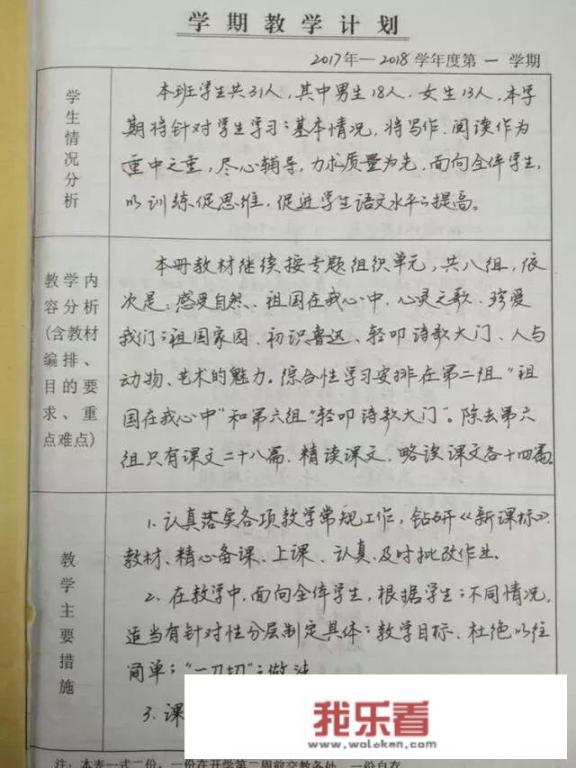 学期教学计划
2017年—2018学年度第一学期
学生情况分析
本班学生共31人,其中男生18人,女生13人,本学
期将针对学生学习的基本情况,将写作、阅读作为
重中之重,尽心辅导,力求质量为先,面向全体学生,
以训练促思维,促进学生语文水平的提高。
教学内
容分析
(含教材
编排、
目的要
求、重
点难点)
本册教材继续按专题组织单元,共八组,依
次是:感受自然、祖国在我心中、心灵之歌、珍爱
我们的祖国家园、初识鲁迅、轻叩诗歌大门、人与
动物、艺术的魅力。综合性学习安排在第二组“祖
国在我心中”和第六组“轻叩诗歌大门”。除去第六
组只有课文二十八篇,精读课文、略读课文各十四篇。
教学主要措施
1.认真落实各项教学常规工作,钻研《新课标》
教材、精心备课、上课、认真、及时批改作业。
2、在教学中,面向全体学生,根据学生的不同情况,
适当有针对性分层制定具体的教学目标、杜绝以往
简单的“一刀切”的做法
3.课
注:本表一式二份,一份在开学第二周前交教务处,一份自存
我乐看
www.waleken.com